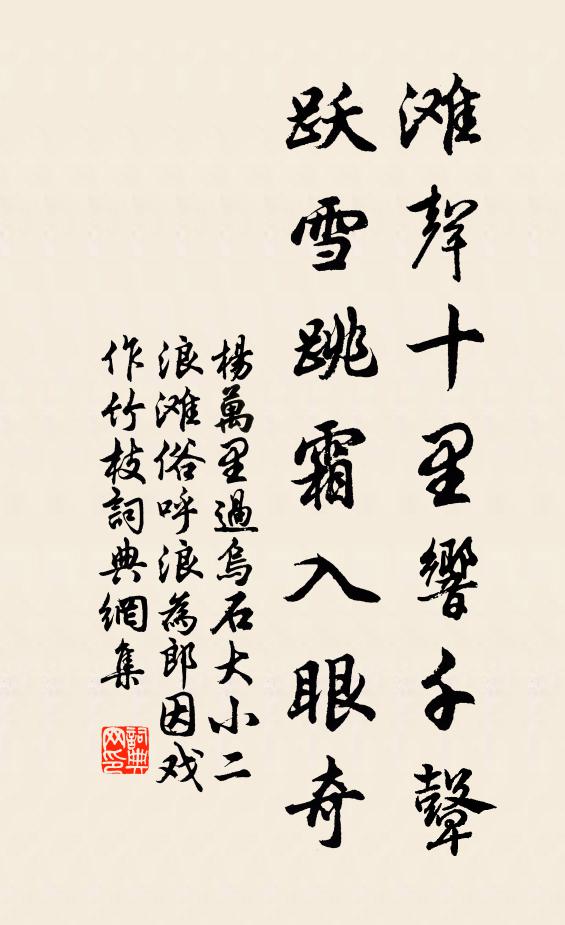 滩聲十里響千鼙
跃雪跳霜入眼奇
楊萬里過烏石大小二
浪滩俗呼浪為郎因戏
作竹枝詞典網集
詞典
网印